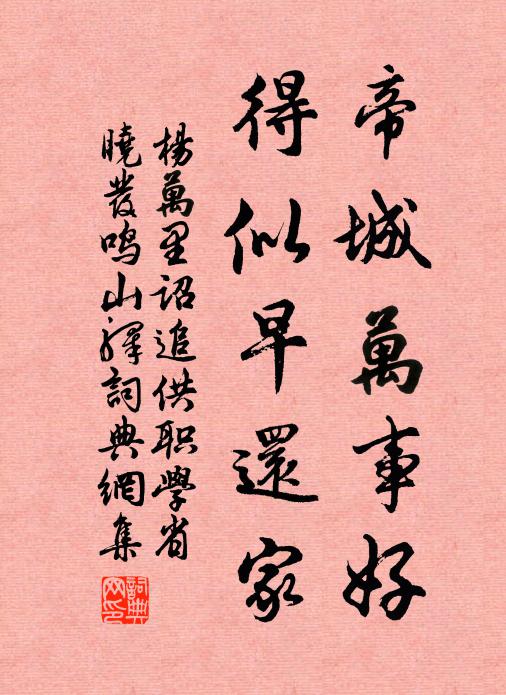 帝城萬事好
得似早還家
楊萬里詔追供职學省
曉發鸣山驛詞典網集
詞典
网印